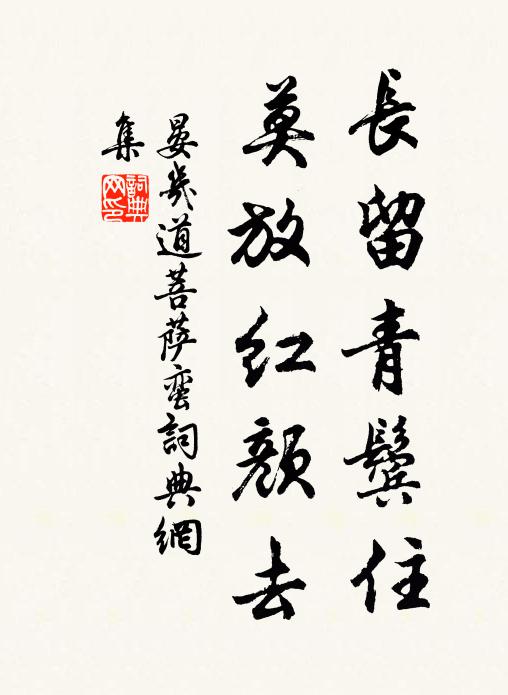 長留青鬓住
莫放紅顏去
晏幾道菩薩蠻詞典網
集
詞典網印